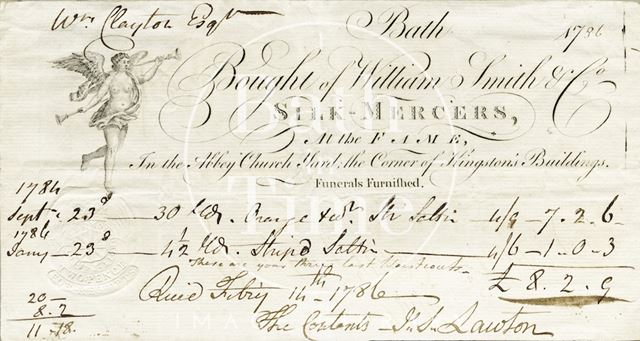 Wm. Clayton Esqr.
Bath 1786
Bought of William Smith & Co.
SILK-MERCERS,
At the FAME,
In the Abbey Church Yard, the Corner of Kingston's Buildings.
Funerals Furnished.
1784
Septr. 23d 30 Yds. Orange & Str. Sattin 4/9 - 7.2.6
1786
Jany. 23d 4½ Yds. Strip'd Sattin 4/6 - 1-0-3
£ 8.2.9
Recd. Febry 14th 1786
The Contents J. S. Lawton
20 -
8.2
11-18.